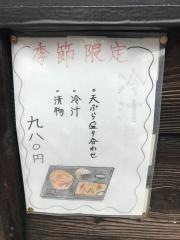 季節限定
・天ぷら盛り合わせ
・冷汁
・漬物
九八〇円